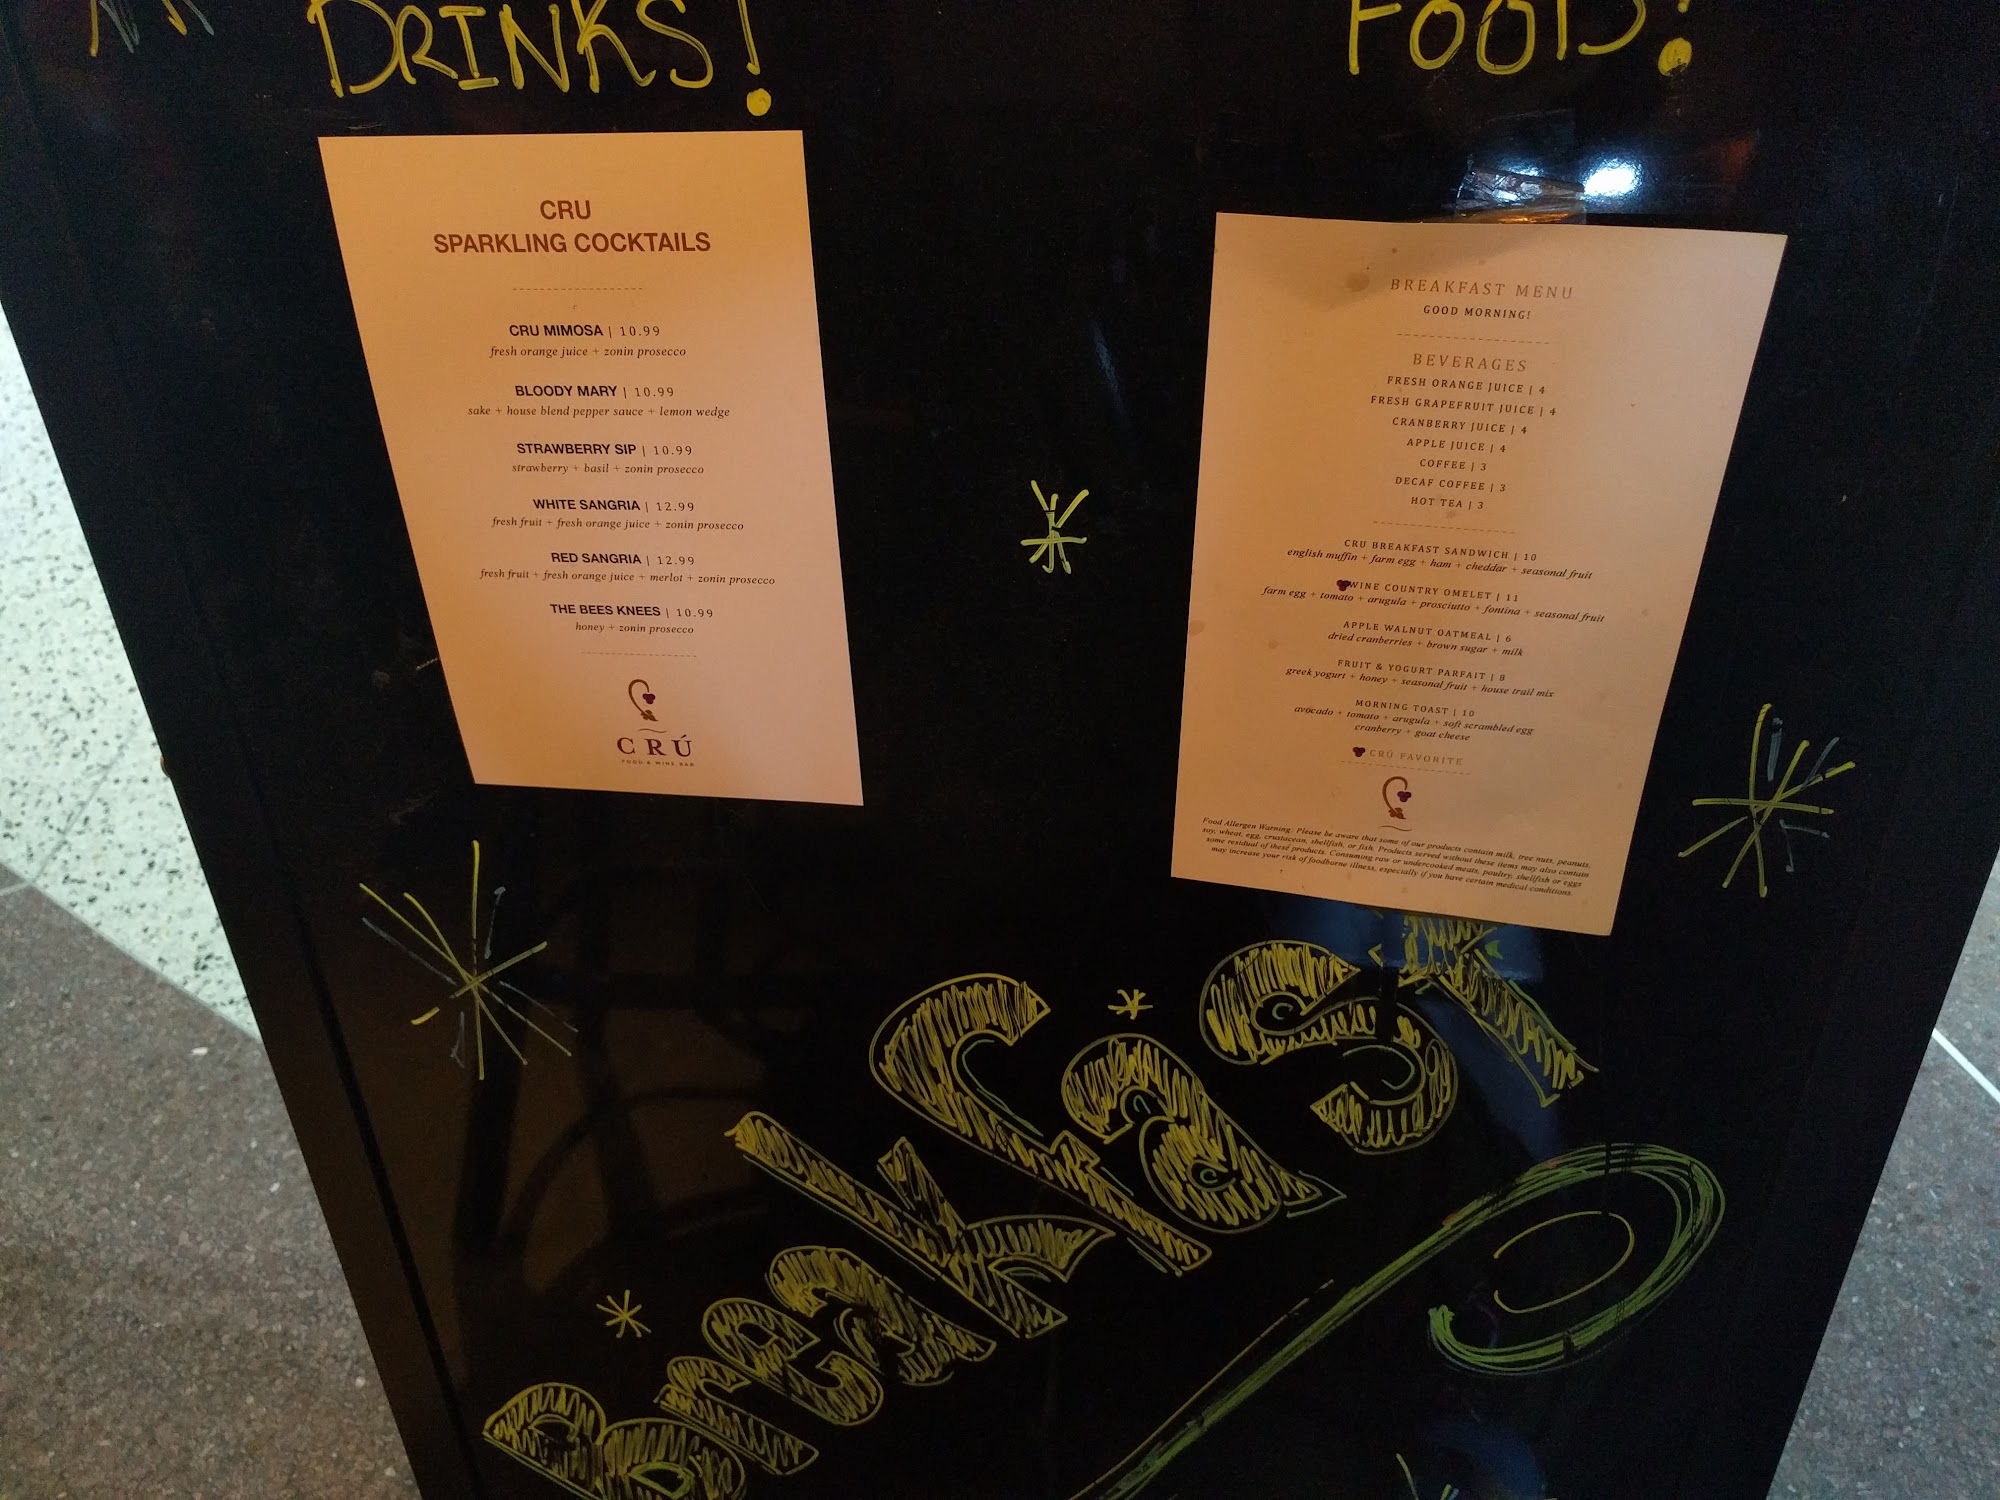 DRINKS!
FOOD!
CRU
SPARKLING COCKTAILS
CRU MIMOSA | 10.99
fresh orange juice + zonin prosecco
BLOODY MARY | 10.99
sake + house blend pepper sauce + lemon wedge
STRAWBERRY SIP | 10.99
strawberry + basil + zonin prosecco
WHITE SANGRIA | 12.99
fresh fruit + fresh orange juice + zonin prosecco
RED SANGRIA | 12.99
fresh fruit + fresh orange juice + merlot + zonin prosecco
THE BEES KNEES | 10.99
honey + zonin prosecco
CRÚ
FOOD & WINE BAR
BREAKFAST MENU
GOOD MORNING!
BEVERAGES
FRESH ORANGE JUICE | 4
FRESH GRAPEFRUIT JUICE | 4
CRANBERRY JUICE | 4
APPLE JUICE | 4
COFFEE | 3
DECAF COFFEE | 3
HOT TEA | 3
CRU BREAKFAST SANDWICH | 10
english muffin + farm egg + ham + cheddar + seasonal fruit
WINE COUNTRY OMELET | 11
farm egg + tomato + arugula + prosciutto + fontina + seasonal fruit
APPLE WALNUT OATMEAL | 6
dried cranberries + brown sugar + milk
FRUIT & YOGURT PARFAIT | 8
greek yogurt + honey + seasonal fruit + house trail mix
MORNING TOAST | 10
avocado + tomato + arugula + soft scrambled egg
cranberry + goat cheese
CRÚ FAVORITE
Food Allergen Warning: Please be aware that some of our products contain milk, tree nuts, peanuts,
soy, wheat, egg, crustacean, shellfish, or fish. Products served without these items may also contain
some residual of these products. Consuming raw or undercooked meats, poultry, shellfish or eggs
may increase your risk of foodborne illness, especially if you have certain medical conditions.
Breakfast